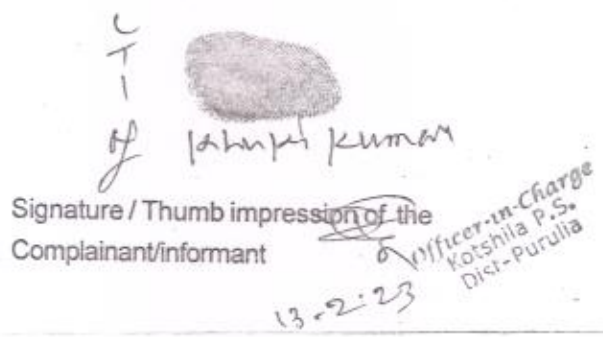 LTI
of Khupi Kumar
Signature / Thumb impression of the
Complainant/informant
Officer-in-Charge
Kotshila P.S.
Dist-Purulia
13.2.23